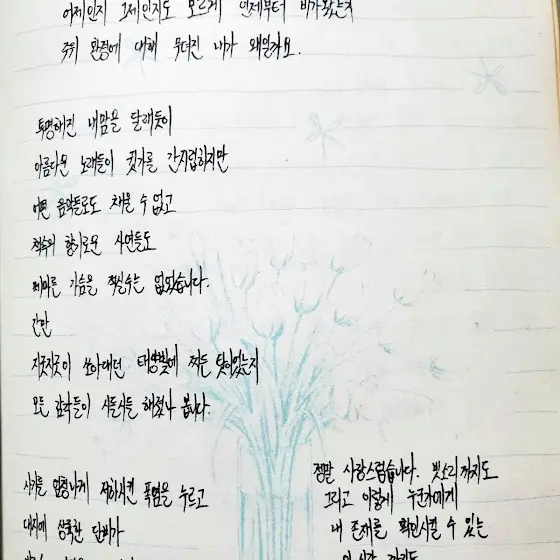 어제인지 그제인지도 모르게 언제부터 비가왔는지
주위 환경에 대해 무뎌진 내가 왜일까요.
투명해진 내맘을 달래듯이
아름다운 노래들이 귓가를 간지럽히지만
어떤 음악들로도 채울 수 없고
적수의 향기로운 사연들도
메마른 가슴을 적실수는 없었습니다.
간만
지긋지긋이 쏘아대던 태양빛에 찌든 탓이었는지
모든 감각들이 시들시들 해졌나 봅니다.
사기를 엄청나게 저하시킨 폭염을 누르고
대지에 상큼한 단비가
정말 사랑스럽습니다. 빗소리까지도
그리고 이렇게 누군가에게
내 존재를 확인시킬 수 있는
이 시간